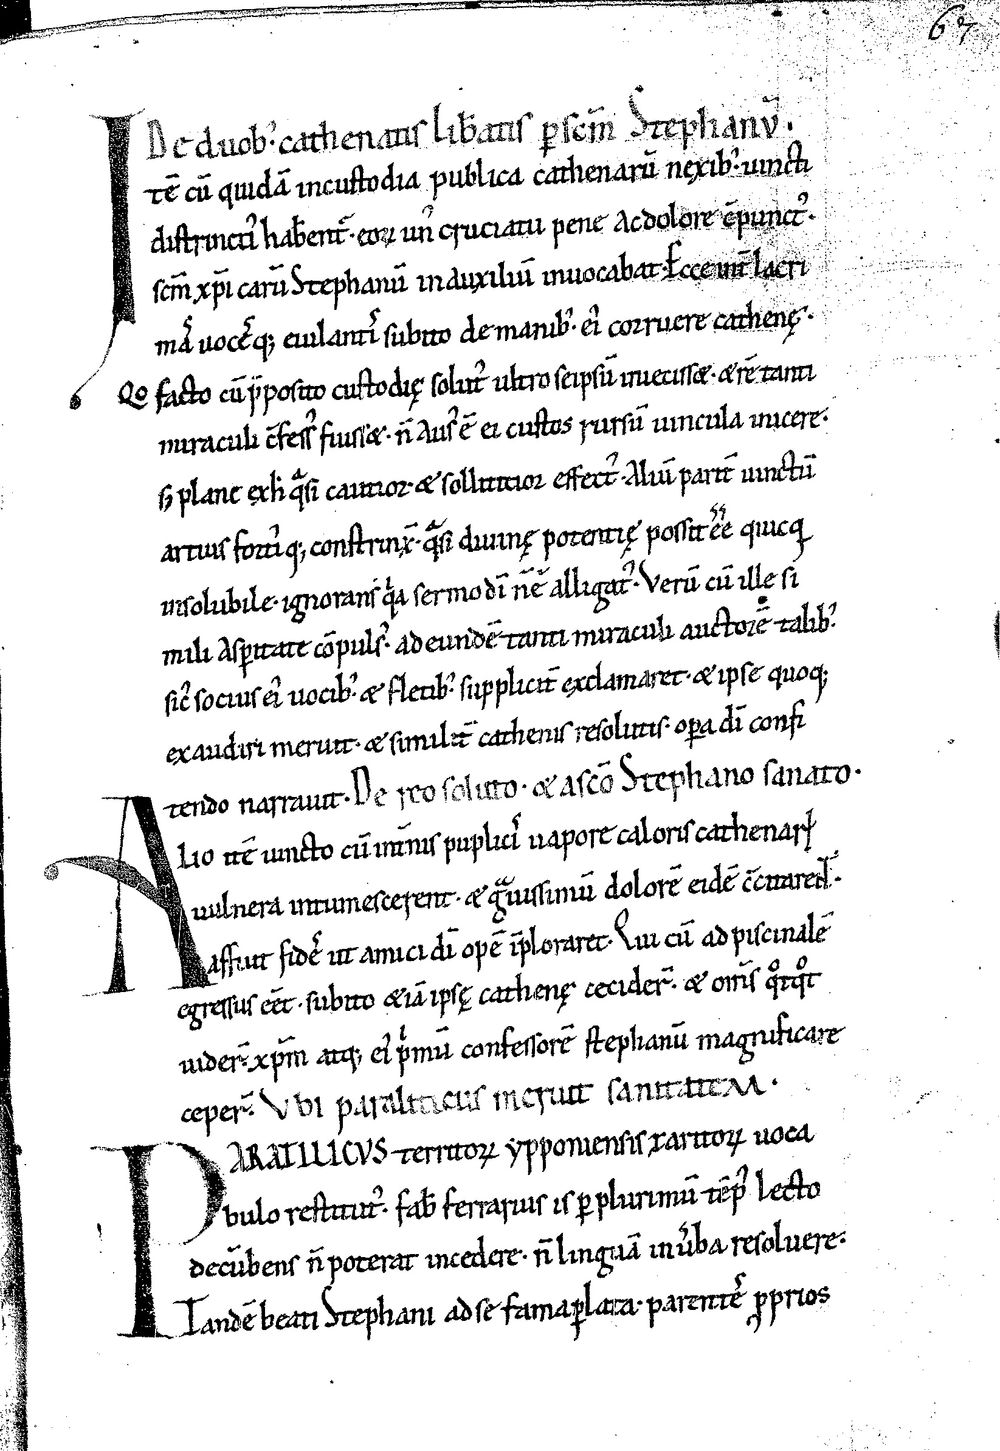 67
De duob᷒ cathenatis lib̄atis p̱ sc̄m Stephanū.
Itē cū quidā in custodia publica cathenarū nexib᷒ uincti
districti hab̄ent᷑. eoꝝ un᷒ cruciatu pene ac dolore cōpunct᷒.
sc̄m xp̄i carū Stephanū in auxiliū inuocabat. Ecce int̄ lacri
mas uocesq; eiulantis subito de manib᷒ ei᷒ corruere cathenę.
Qo facto cū p̄posito custodię solut᷒ ultro seipsū inuecisset. & rē tanti
miraculi c̄fess᷒ fuisset. n̄ aus᷒ ē ei custos rursū uincula inicere.
sꝫ plane exħ qᵃsi cautior & sollicitior effect᷒. Aliū parit̄ uinctū
artius fortiusq; constrinx̄. qᵃsi diuinę potentię possit eē quicq̄
insolubile. ignorans qᵃa sermo dī n̄ ē alligat᷒. Verū cū ille si
mili asp̱itate cōpuls᷒. ad eundē tanti miraculi auctorē talib᷒
sic᷒ socius ei᷒ uocib᷒ & fletib᷒ supplicit̄ exclamaret. & ipse quoq;
exaudiri meruit. & similit̄ cathenis resolutis. op̱a dī confi
tendo narrauit. De reo soluto. & a sc̄o Stephano sanato.
Alio itē uincto cū inīmis puplicis uapore caloris cathenarꝝ
uulnera intumescerent. & gᵃuissimū dolorē eidē c̄citarent.
affuit fides ut amici dī opē īploraret. Qui cū ad piscinalē
egressus eēt. subito & iā ipsę cathenę cecider̄. & om̄s qͦtqͦt
uider̄. xp̄m atq; ei᷒ pͥmū confessorē stephanū magnificare
ceper̄. Vbi paraliticus meruit sanitateM.
PARATILICVS territorꝝ ypponiensis xaritorꝝ uoca
bulo restitut᷒. fab̄ ferrarius is p̱ plurimū tēp᷒ lecto
decūbens n̄ poterat incedere. n̄ linguā in ūba resoluere.
Tandē beati Stephani ad se fama p̱lata. parentes ꝓprios